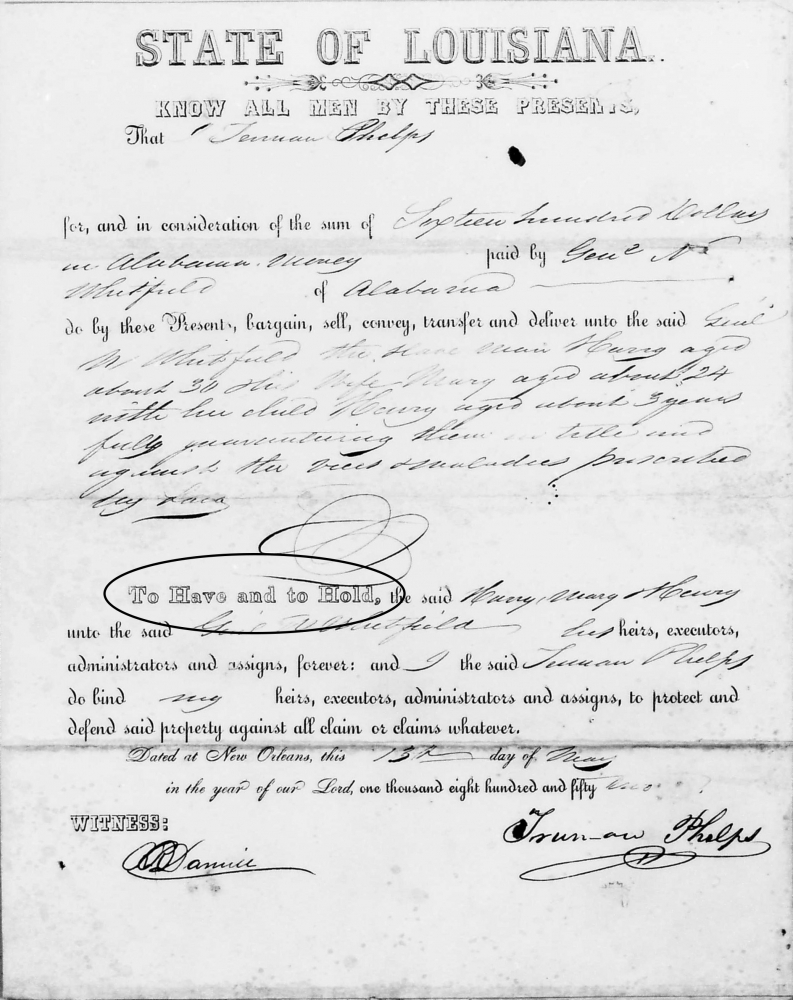 STATE OF LOUISIANA.
KNOW ALL MEN BY THESE PRESENTS,
That I Truman Phelps
for, and in consideration of the sum of Sixteen hundred Dollars
in Alabama Money paid by Genl N
Whitfield of Alabama
do by these Presents, bargain, sell, convey, transfer and deliver unto the said Genl
N Whitfield the slave man Harry aged
about 30 & his Wife Mary aged about 24
with her child Henry aged about 3 years
fully guaranteeing them in title and
against the vices & maladies prescribed
by Law
To Have and to Hold, the said Harry, Mary & Henry
unto the said Genl N Whitfield his heirs, executors,
administrators and assigns, forever: and I the said Truman Phelps
do bind my heirs, executors, administrators and assigns, to protect and
defend said property against all claim or claims whatever.
Dated at New Orleans, this 13th day of May
in the year of our Lord, one thousand eight hundred and fifty
WITNESS:
Truman Phelps